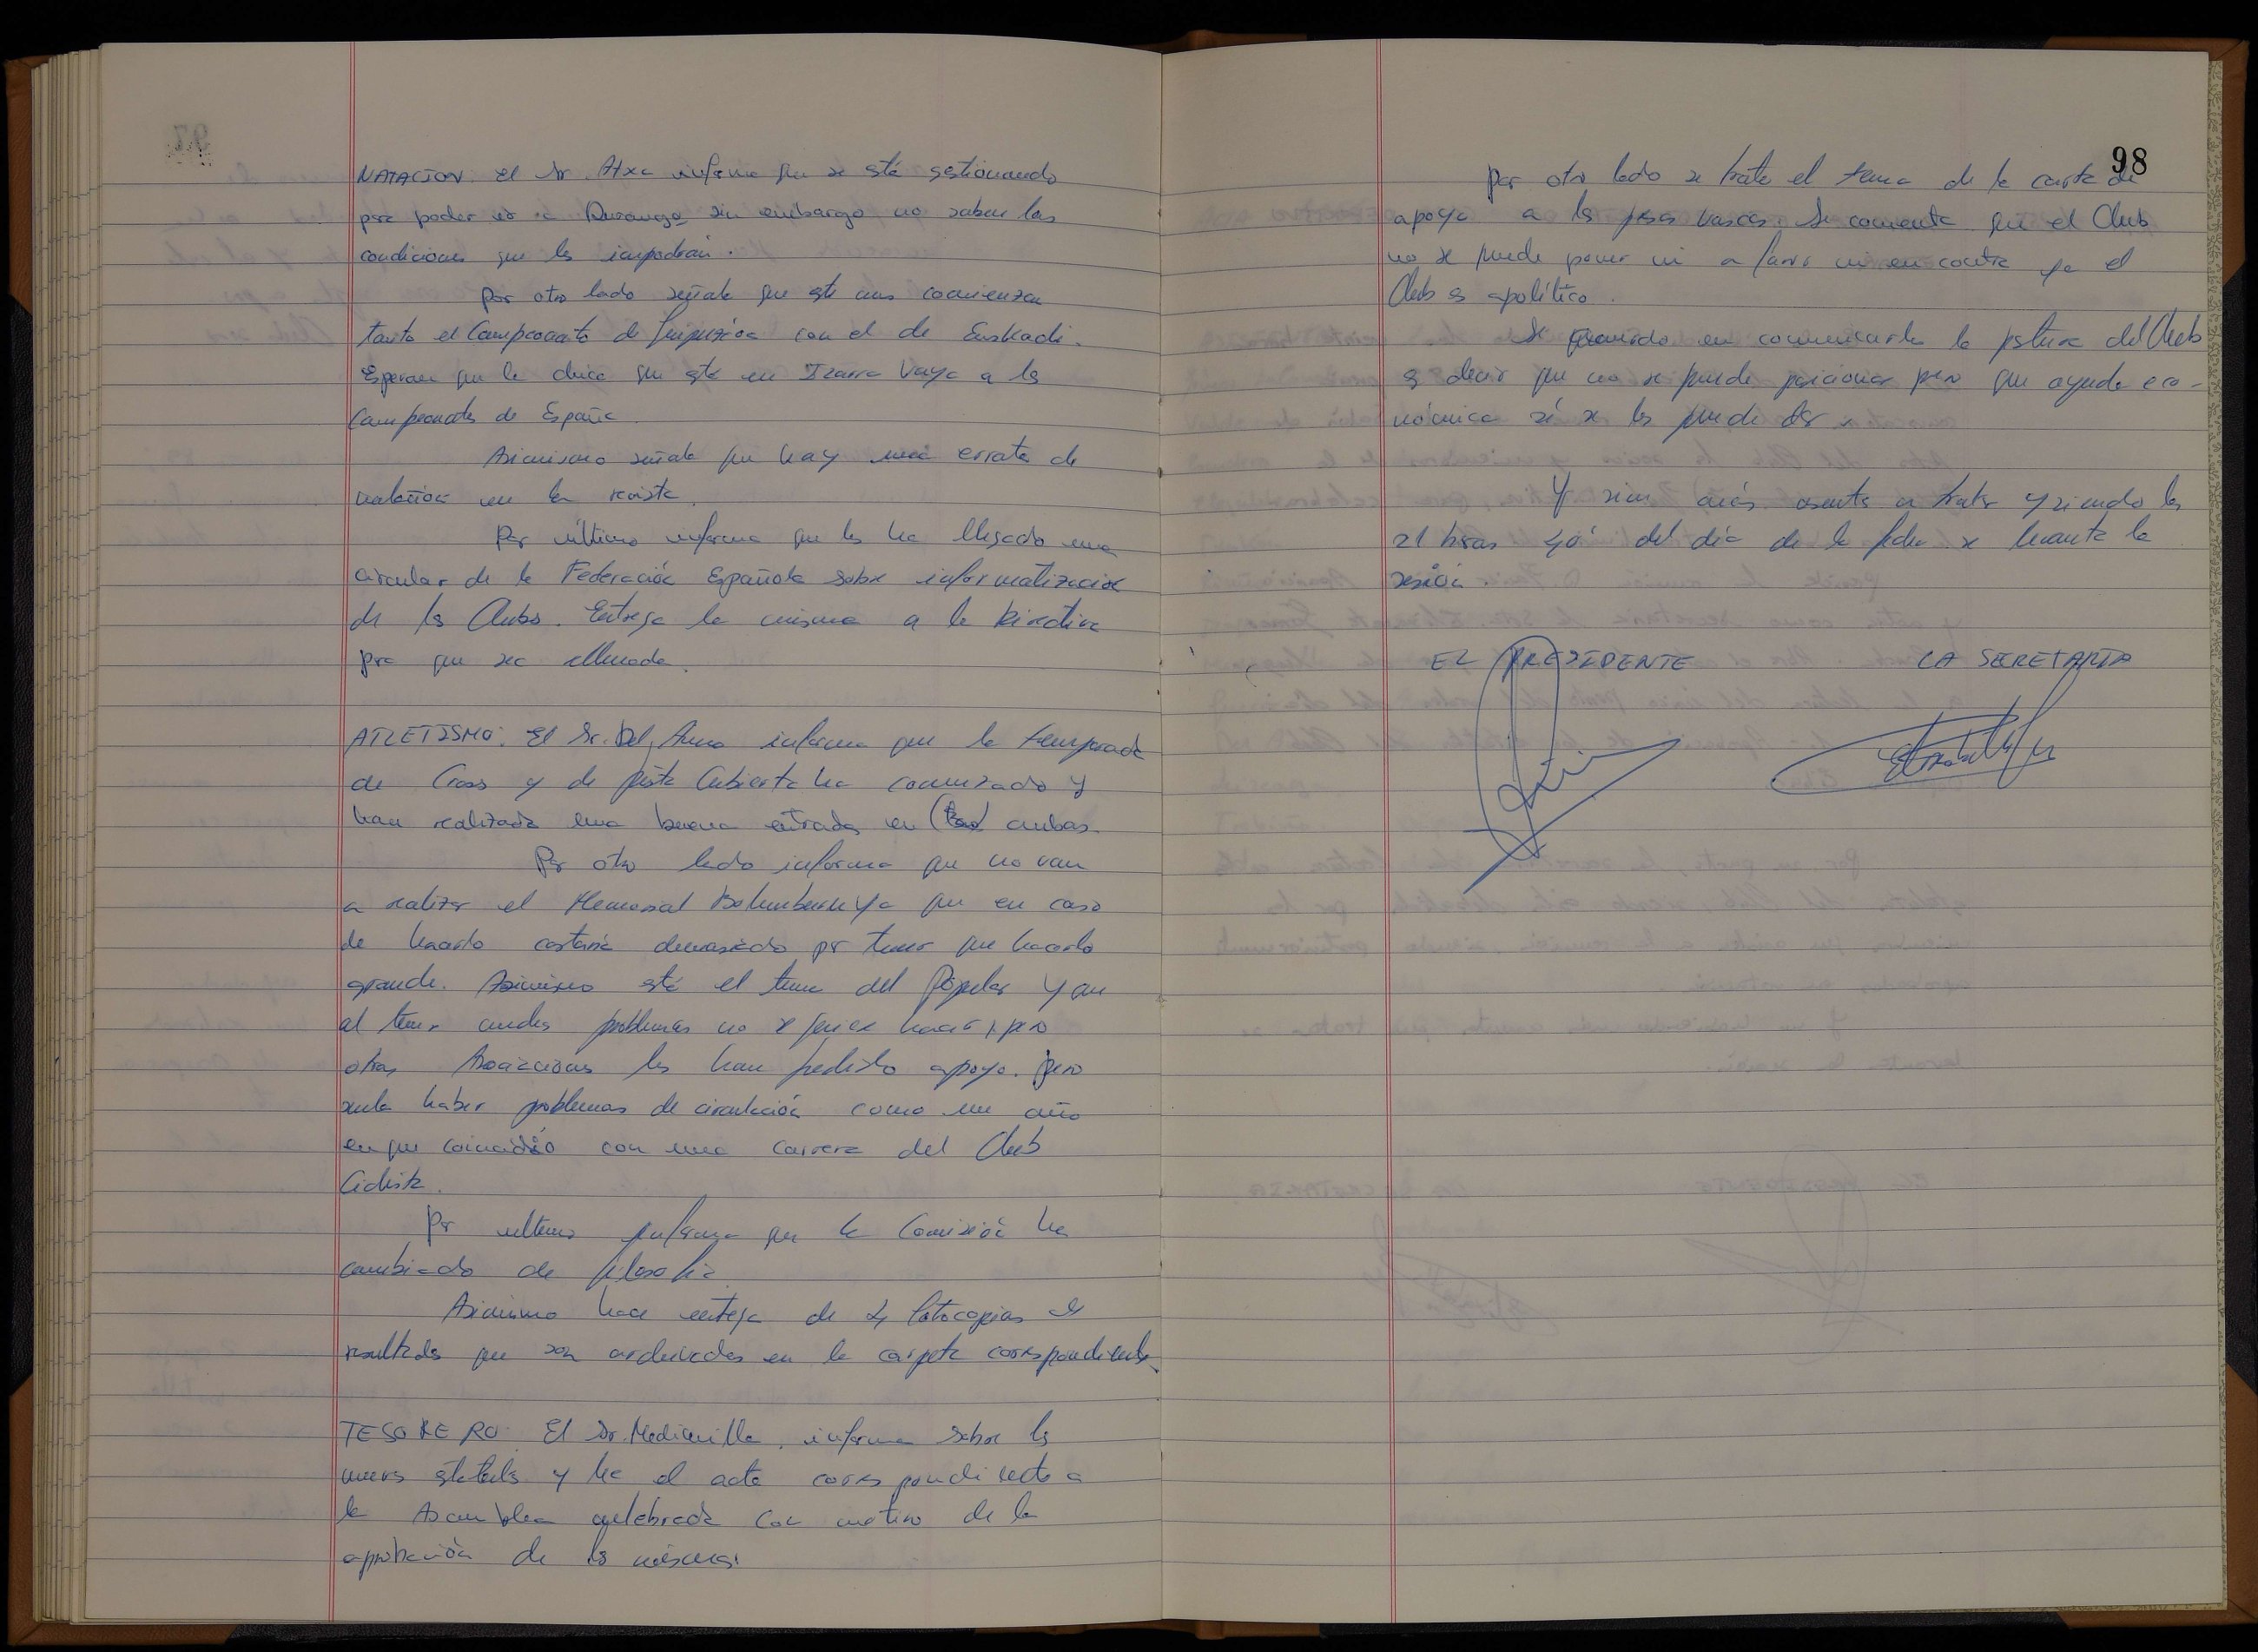 NATACION. El Sr. Atxa informa que se está gestionando
para poder ir a Durango sin embargo no saben las
condiciones que les impodrán.
Por otro lado señala que este mes comienzan
tanto el Campeonato de Guipúzcoa con el de Euskadi.
Esperan que la chica que está en Izarra vaya a los
Campeonatos de España.
Asimismo señala que hay una errata de
natación en la revista.
Por último informa que les ha llegado una
circular de la Federación Española sobre informatización
de los Clubs. Entrega la misma a la Directiva
para que sea rellenada.
ATLETISMO: El Sr. Del Amo informa que la temporada
de Cross y de Pista Cubierta ha comenzado y
han realizado una buena entrada en ambas.
Por otro lado informa que no van
a realizar el Memorial ya que en caso
de hacerlo costaría demasiado por tener que hacerlo
grande. Asimismo está el tema del Popular y que
al tener problemas no se quiere hacer, pero
otras Asociaciones les han pedido apoyo. Pero
suele haber problemas de circulación como un año
en que coincidió con una carrera del Club
Ciclista.
Por último informa que la Comisión ha
cambiado de filosofía.
Asimismo hace entrega de 4 fotocopias de
resultados que son archivadas en la carpeta correspondiente.
TESORERO: El Sr. Medianilla, informa sobre los
nuevos estatutos y lee el acta correspondiente a
la Asamblea celebrada con motivo de la
aprobación de los mismos.
98
Por otro lado se trata el tema de la carta de
apoyo a los presos vascos. Se comenta que el Club
no se puede poner ni a favor ni en contra ya el
Club es apolítico.
Se acuerdo en comunicarles la postura del Club
es decir que no se puede posicionar pero que ayuda eco-
nómica sí se les puede dar.
Y sin más asunto a tratar y siendo las
21 horas 40' del día de la fecha se levanta la
sesión.
EL PRESIDENTE LA SECRETARIA